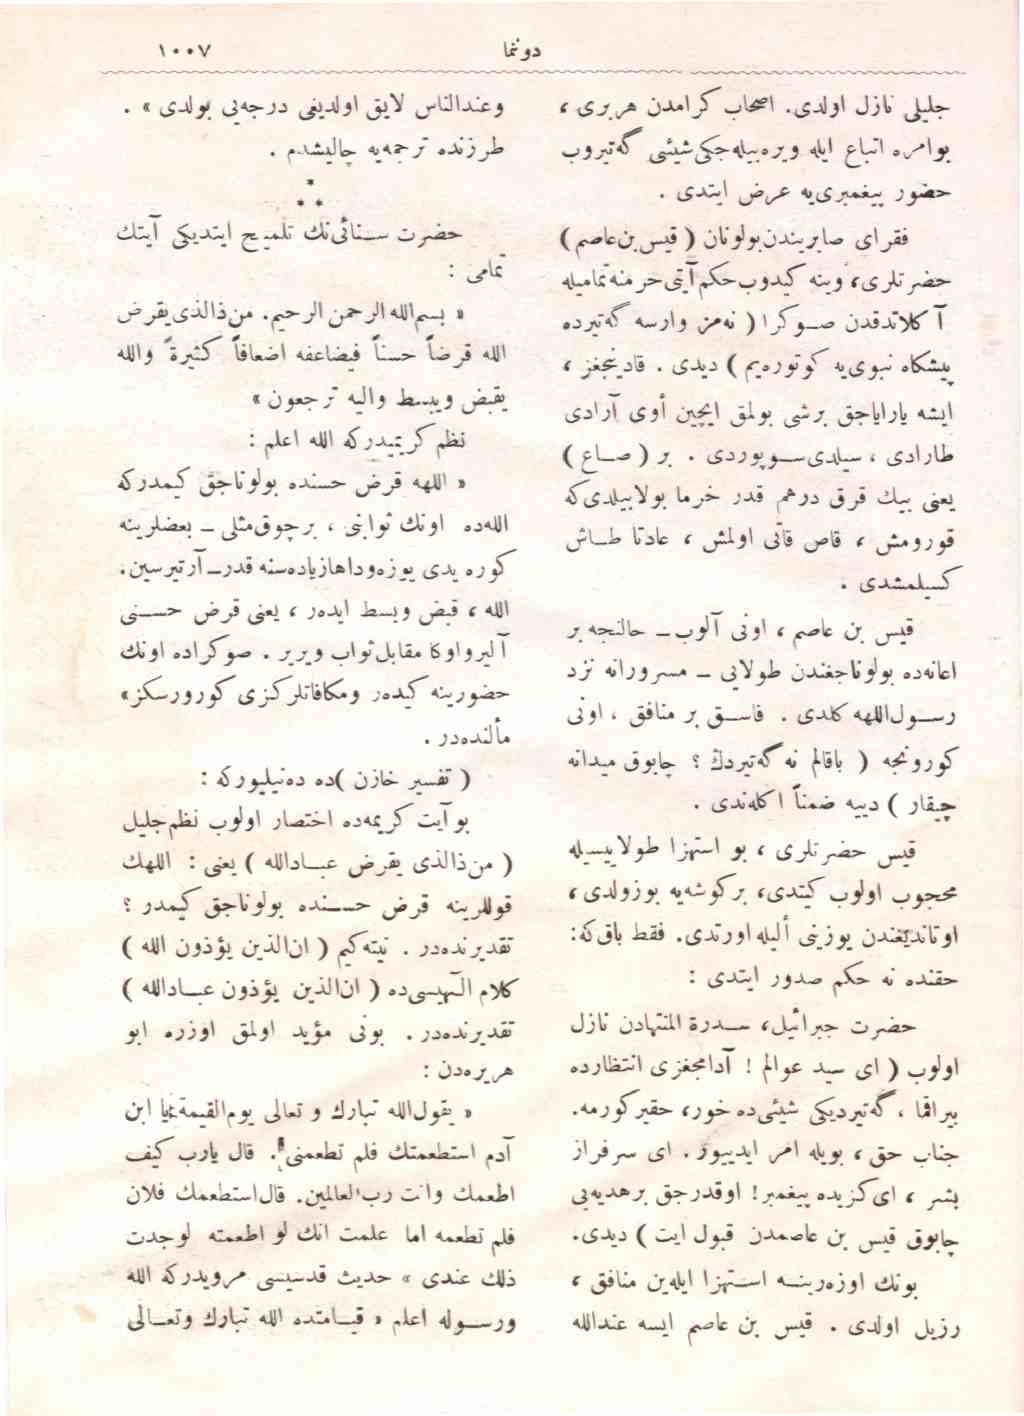 دوننما
١٠٠٧
جلیلی نازل اولدی. اصحاب كرامدن هربری ،
بوامره اتباع ایله ویره‌بیله‌جكی‌شیئی گه‌تیروب
حضور پیغمبری‌یه عرض ایتدی .
فقرای صابریندن‌بولونان ( قیس‌بن‌عاصم )
حضرتلری، اوینه كیدوب‌حكم‌آیتی‌حرمنه‌تمامیله
آ كلاتدقدن صـوكرا ( نه‌مز وارسه گه‌تیرده
پیشكاه نبوی‌یه كوتوره‌یم ) دیدی . قادینجغز ،
ایشه یارایاجق برشی بولمق ایچین أوی آرادی
طارادی ، سیلدی‌سـوپوردی . بر ( صـاع )
یعنی بیك قرق درهم قدر خرما بولابیلدی‌كه
قورومش ، قاص قاتی اولمش ، عادتا طـاش
كسیلمشدی .
قیس بن عاصم ، اونی آلوب ــ حالنجه بر
اعانه‌ده بولوناجغندن طولایی ــ مسرورانه نزد
رسـول‌اللهه كلدی . فاسـق بر منافق ، اونی
كورونجه ( باقالم نه گه‌تیردك ؟ چابوق میدانه
چیقار ) دییه ضمناً اكله‌ندی .
قیس حضرتلری ، بو استهزا طولاییسیله
محجوب اولوب كیتدی، بركوشه‌یه بوزولدی،
اوتاندیغندن یوزینی ألیله‌اورتدی. فقط باق‌كه:
حقنده نه حكم صدور ایتدی :
حضرت جبرائیل، سـدرة المنتهادن نازل
اولوب ( ای سید عوالم ! آدامجغزی انتظارده
بیراقما ، گه‌تیردیكی شیئی‌ده خور، حقیركورمه.
جناب حق ، بویله امر ایدییور . ای سرفراز
بشر ، ای‌گزیده پیغمبر! اوقدرجق برهدیه‌یی
چابوق قیس بن عاصمدن قبول ایت ) دیدی.
بونك اوزه‌رینـه اسـتهزا ایله‌ین منافق ،
رزیل اولدی . قیس بن عاصم ایسه عندالله
وعندالناس لایق اولدیغی درجه‌یی بولدی » .
طرزنده ترجمه‌یه چالیشدم .
* * *
حضرت سـنائی‌نك تلمیح ایتدیكی آیتك
تمامی :
« بسم‌الله الرحمن الرحیم. من‌ذالذی‌یقرض
الله قرضاً حسناً فیضاعفه اضعافاً كثیرةً والله
یقبض ویبسط والیه ترجعون »
نظم كریمیدركه الله اعلم :
« اللهه قرض حسنده بولوناجق كیمدركه
الله‌ده اونك ثوابنی ، برچوق‌مثلی ــ بعضلرینه
كوره یدی یوزه‌وداهازیاده‌سنه قدر ــ آرتیرسین.
الله ، قبض وبسط ایده‌ر ، یعنی قرض حسـنی
آلیرواوكا مقابل‌ثواب ویریر . صوكراده اونك
حضورینه كیده‌ر ومكافاتلركزی كورورسكز »
مألنده‌در .
( تفسیر خازن )ده ده‌نیلیوركه :
بوآیت كریمه‌ده اختصار اولوب نظم‌جلیل
( من‌ذالذی یقرض عبـادالله ) یعنی : اللهك
قوللرینه قرض حسـنده بولوناجق كیمدر ؟
تقدیرنده‌در . نیته‌كیم ( ان‌الذین یؤذون الله )
كلام الٓهیسی‌ده ( ان‌الذین یؤذون عبـادالله )
تقدیرنده‌در . بونی مؤید اولمق اوزره ابو
هریره‌دن :
« یقول‌الله تبارك و تعالی یوم‌القیمة یا ابن
آدم استطعمتك فلم تطعمنی . قال یارب كیف
اطعمك وانت رب‌العالمین. قال‌استطعمك فلان
فلم تطعمه اما علمت انك لو اطعمته لوجدت
ذلك عندی » حدیث قدسیسی مرویدركه الله
ورسـوله اعلم « قیـامتده الله تبارك وتعـالی